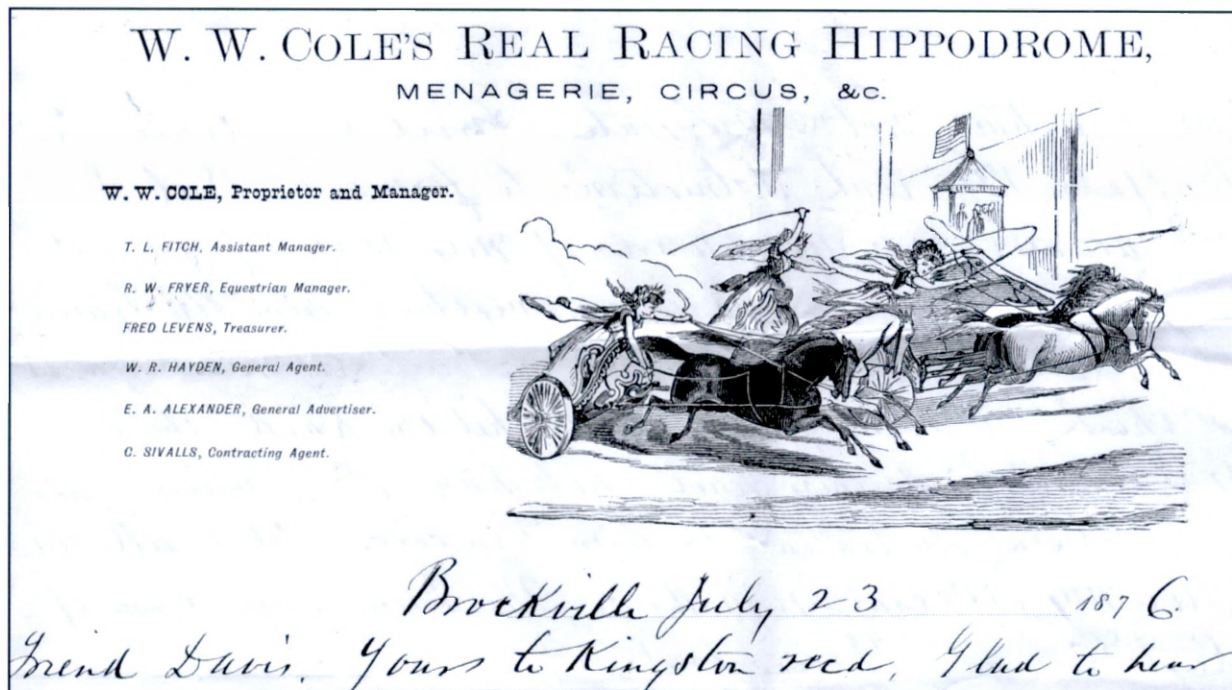 W. W. COLE'S REAL RACING HIPPODROME,
MENAGERIE, CIRCUS, &c.
W. W. COLE, Proprietor and Manager.
T. L. FITCH, Assistant Manager.
R. W. FRYER, Equestrian Manager.
FRED LEVENS, Treasurer.
W. R. HAYDEN, General Agent.
E. A. ALEXANDER, General Advertiser.
C. SIVALLS, Contracting Agent.
Brockville July 23 1876.
Friend Davis. Yours to Kingston recd. Glad to hear